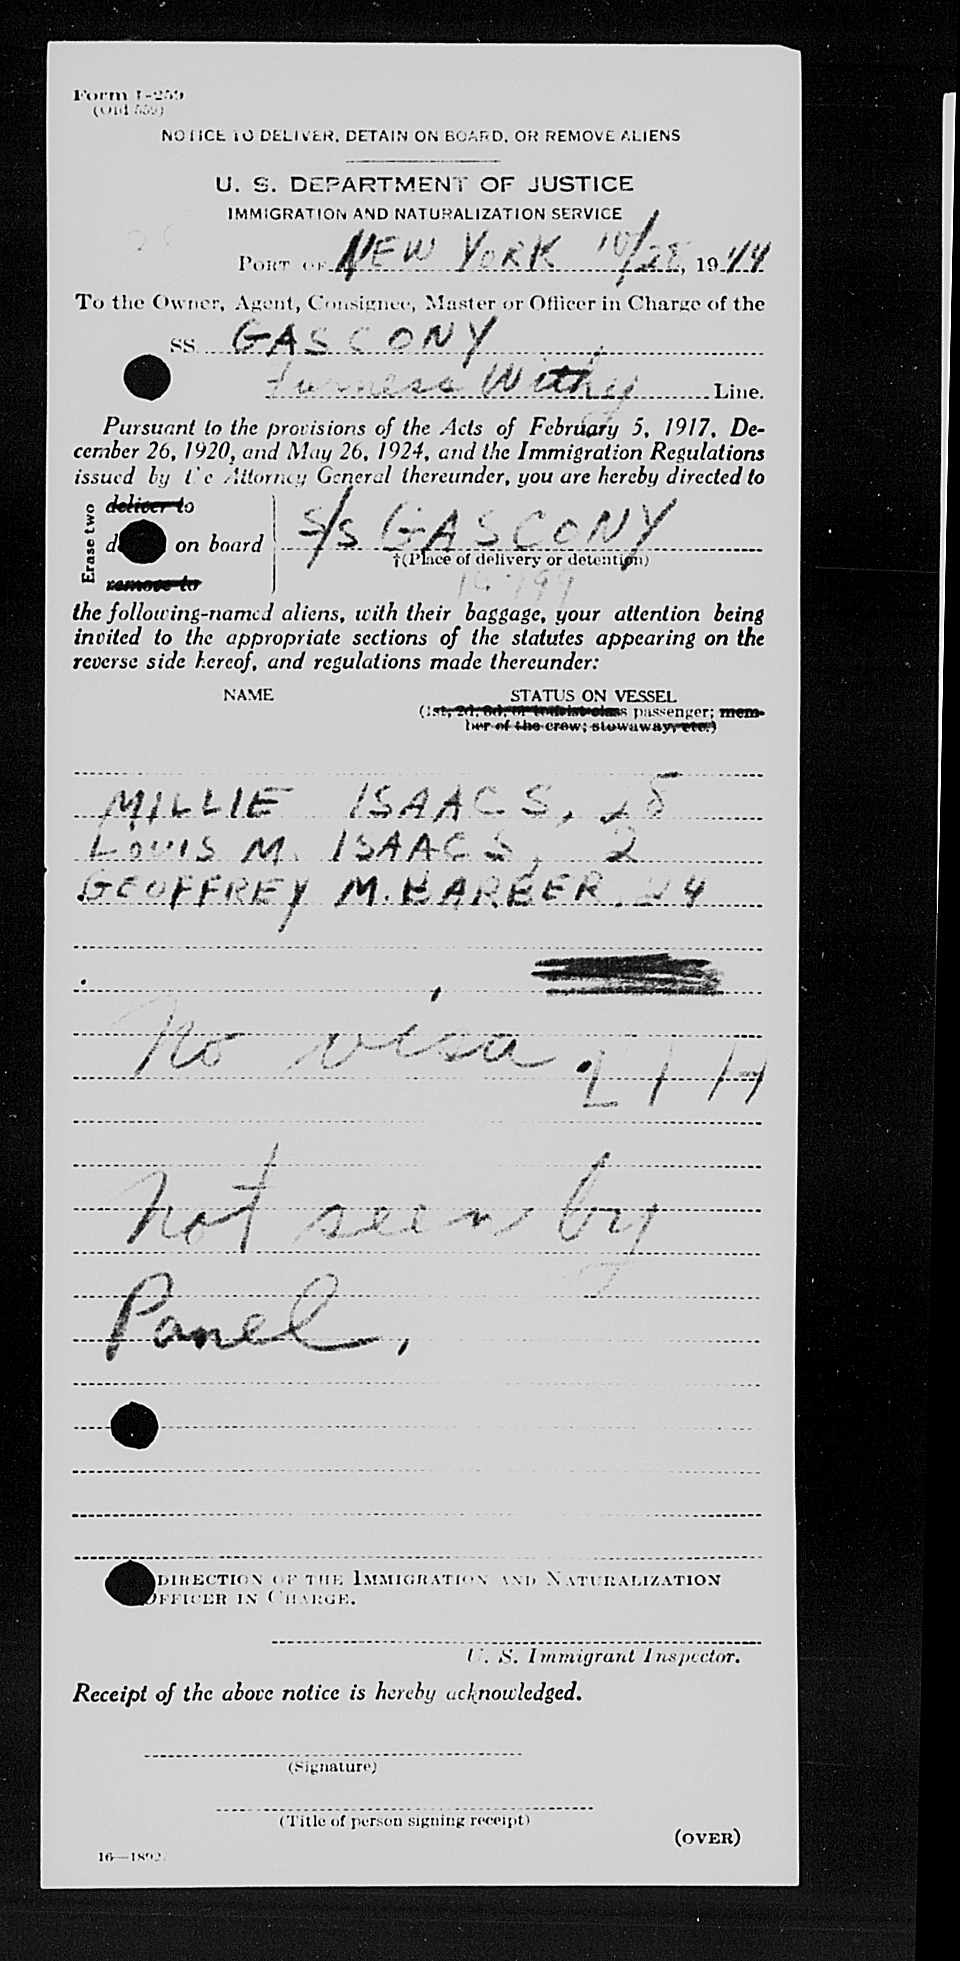 Form I-259
(Old 559)
NOTICE TO DELIVER, DETAIN ON BOARD, OR REMOVE ALIENS
U. S. DEPARTMENT OF JUSTICE
IMMIGRATION AND NATURALIZATION SERVICE
PORT OF NEW YORK 10/28, 1944
To the Owner, Agent, Consignee, Master or Officer in Charge of the
SS. GASCONY
Furness Withy Line.
Pursuant to the provisions of the Acts of February 5, 1917, De-
cember 26, 1920, and May 26, 1924, and the Immigration Regulations
issued by the Attorney General thereunder, you are hereby directed to
Erase two
deliver to
on board
remove to
S/S GASCONY
†(Place of delivery or detention)
the following-named aliens, with their baggage, your attention being
invited to the appropriate sections of the statutes appearing on the
reverse side hereof, and regulations made thereunder:
NAME STATUS ON VESSEL
(1st, 2d, 3d, or tourist class passenger; mem-
ber of the crew; stowaway, etc.)
MILLIE ISAACS, 28
LOUIS M. ISAACS, 2
GEOFFREY M. BARBER, 24
No visa.
Not seen by
Panel,
DIRECTION OF THE IMMIGRATION AND NATURALIZATION
OFFICER IN CHARGE.
U. S. Immigrant Inspector.
Receipt of the above notice is hereby acknowledged.
(Signature)
(Title of person signing receipt)
(OVER)